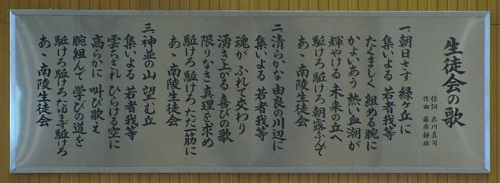 生徒会の歌
作詞 衣川美司
作曲 藤原静雄
一、朝日さす 緑ヶ丘に
集いよる 若者我等
たくましく 組める腕に
かよいあう 熱い血潮が
輝やける 未来の立へ
駈けろ駈けろ 朝露ふんで
あゝ 南陵生徒会
二、清らかな 由良の川辺に
集いよる 若者我等
魂が ふれて交わり
湧き上がる 喜びの歌
限りなき 真理を求め
駈けろ駈けろ ただ一筋に
あゝ 南陵生徒会
三、神並の山 望む丘
集いよる 若者我等
雲ちぎれ ひらける空に
高らかに 叫び歌え
腕組んで 学びの道を
駈けろ駈けろ たゆまず駈けろ
あゝ 南陵生徒会